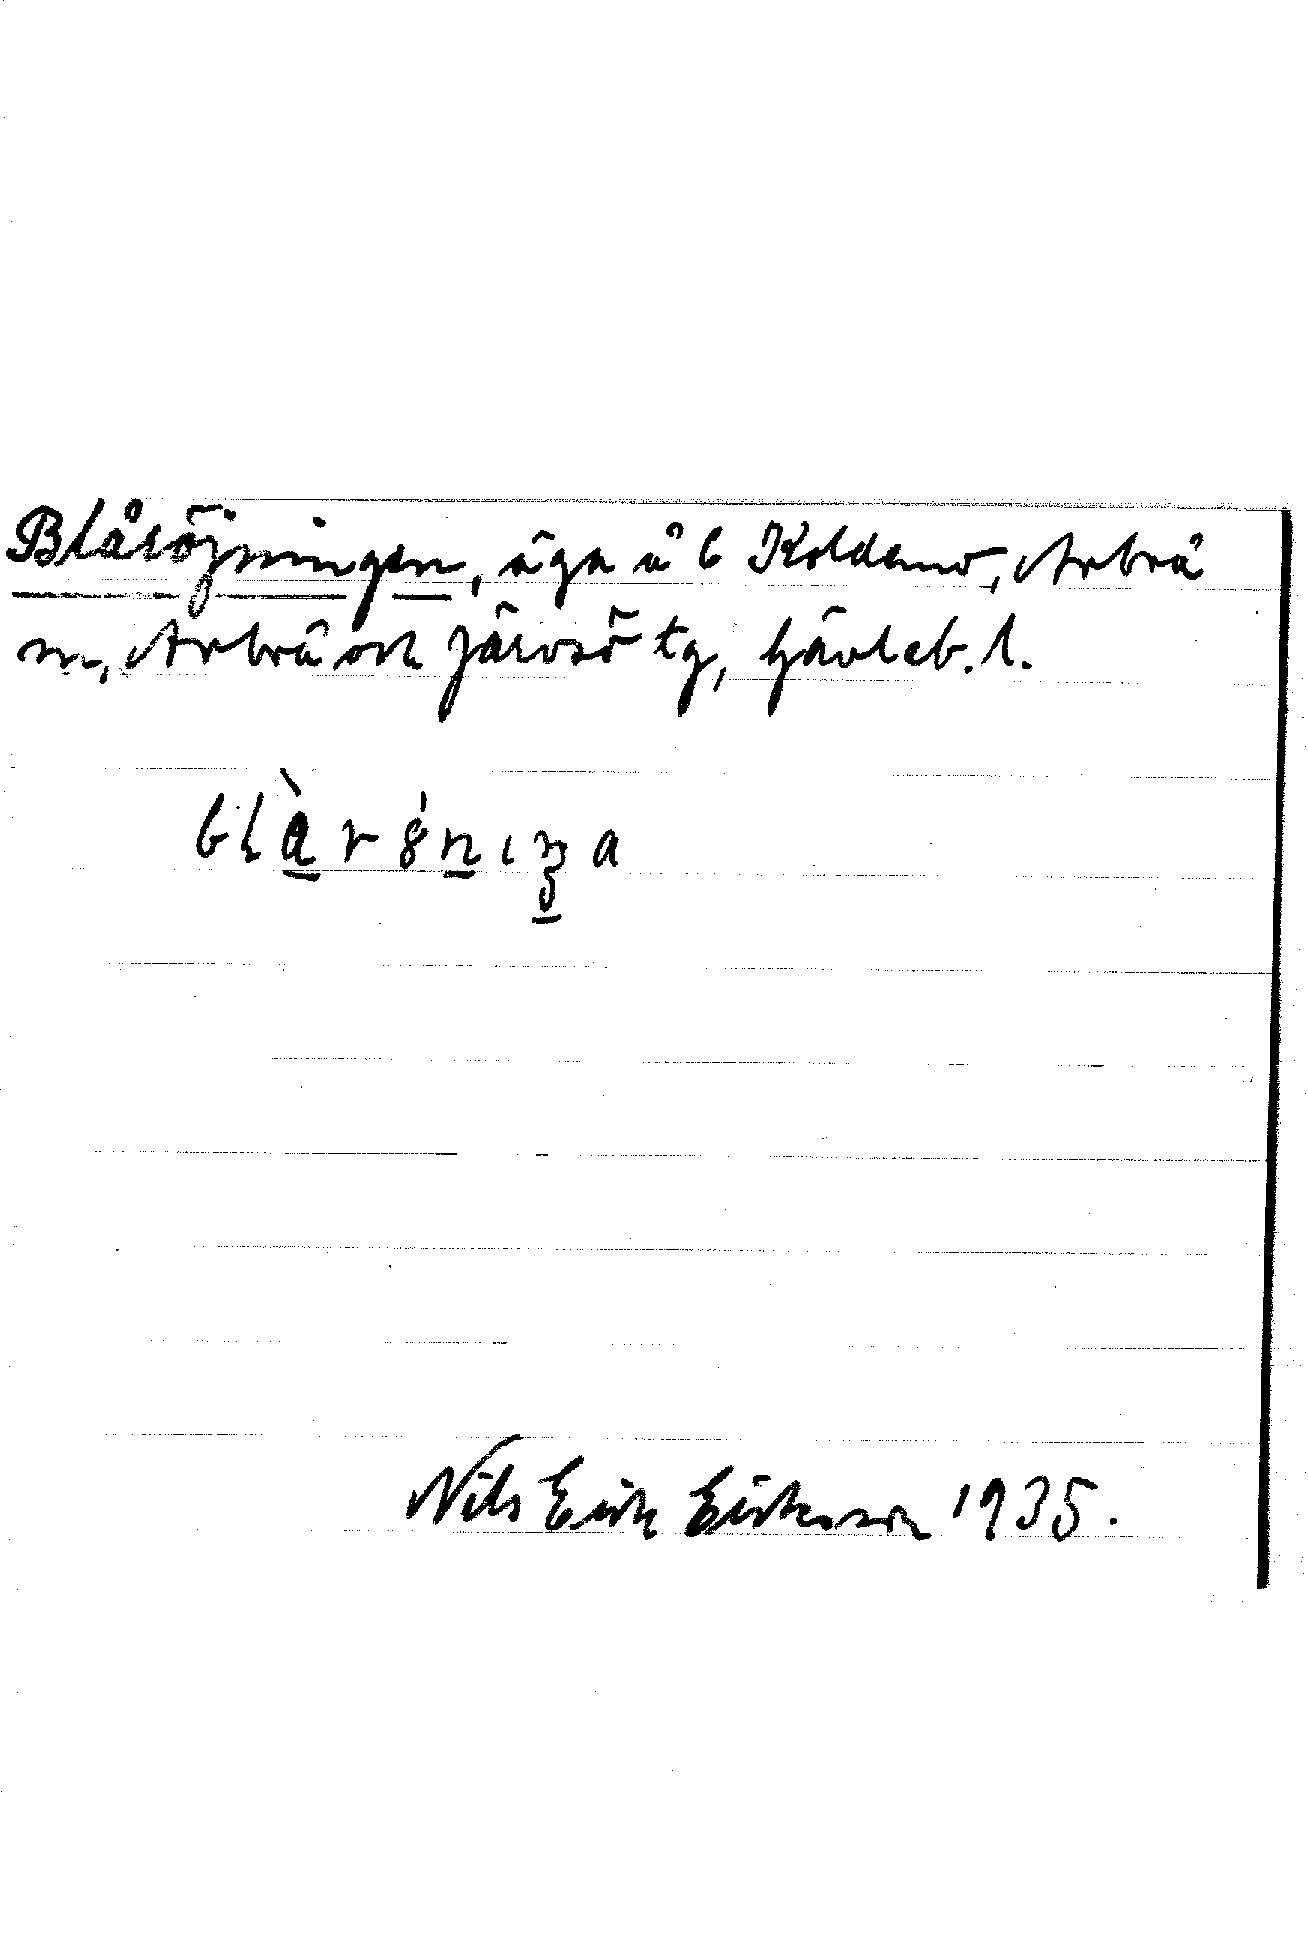 Blåröjningen, äga å b Koldemo, Arbrå
sn, Arbrå och Järvsö tg, Gävleb. l.
Nils Erik Eriksson 1935.